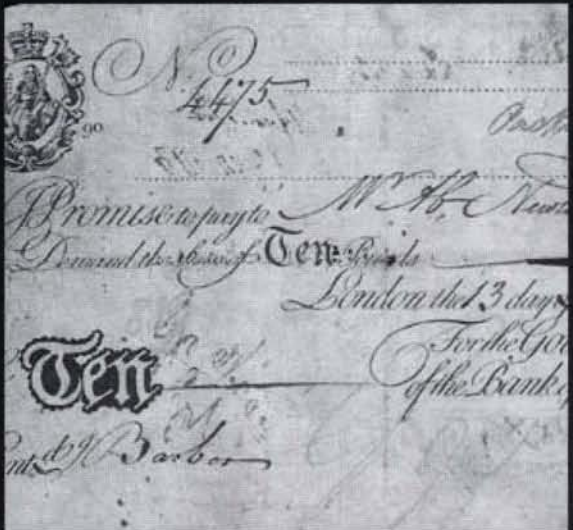 No
4475
90
I Promise to pay to Mr Ab.
Demand the Sum of Ten Pounds
London the 13 day
For the Go
of the Bank
Ten
Barbor